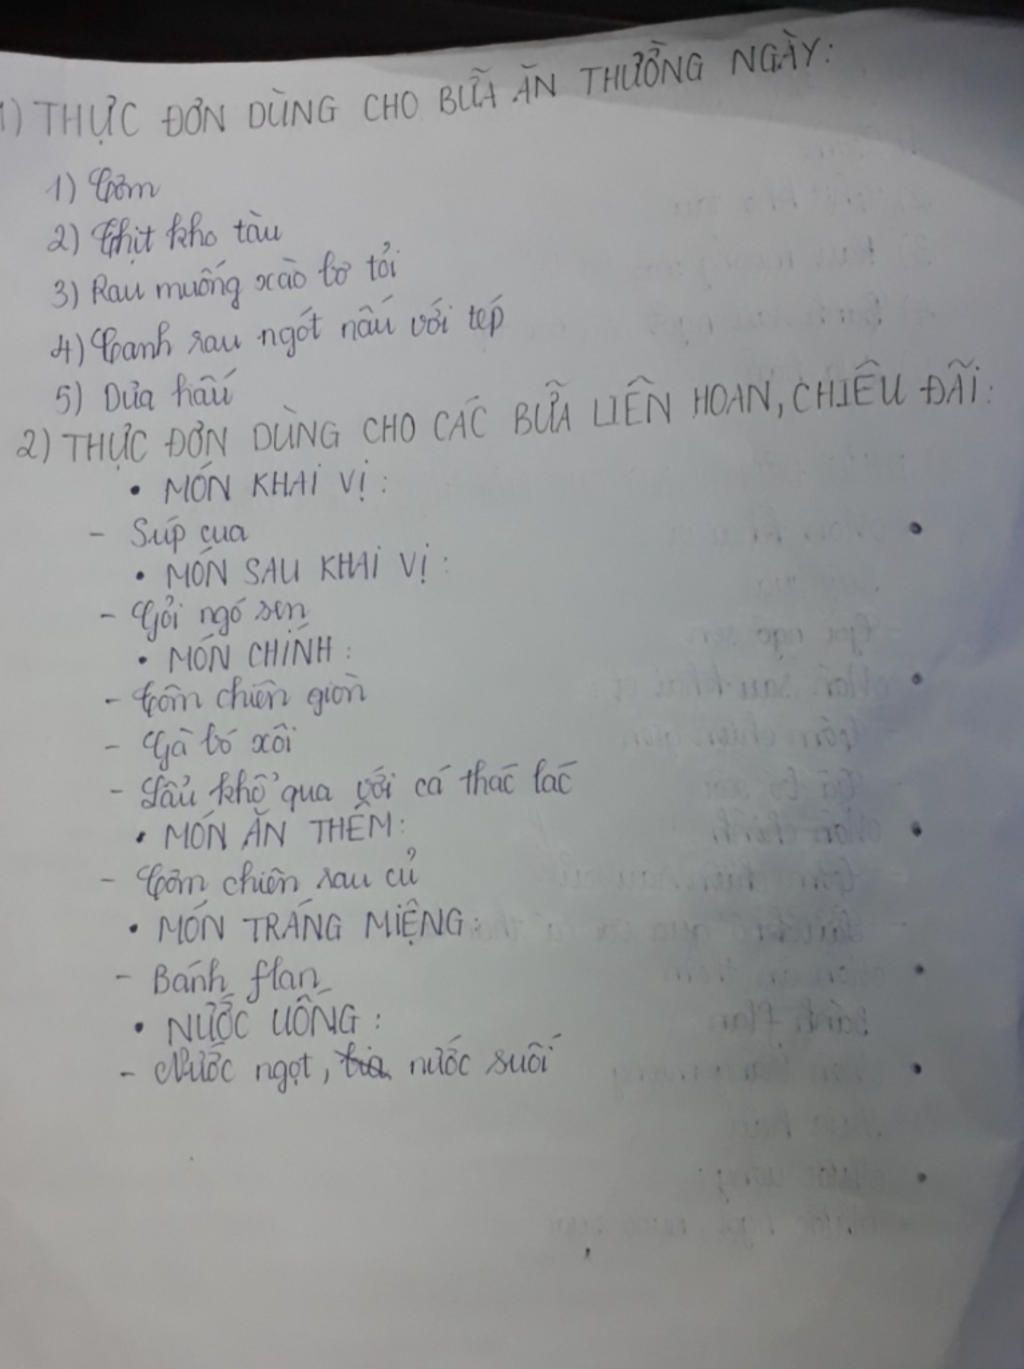 1) THỰC ĐƠN DÙNG CHO BỮA ĂN THƯỜNG NGÀY:
1) Cơm
2) Thịt kho tàu
3) Rau muống xào bơ tỏi
4) Canh rau ngót nấu với tép
5) Dưa hấu
2) THỰC ĐƠN DÙNG CHO CÁC BỮA LIÊN HOAN, CHIÊU ĐÃI:
• MÓN KHAI VỊ:
- Súp cua
• MÓN SAU KHAI VỊ:
- Gỏi ngó sen
• MÓN CHÍNH:
- Tôm chiên giòn
- Gà bó xôi
- Lẩu khổ qua với cá thác lác
• MÓN ĂN THÊM:
- Cơm chiên rau củ
• MÓN TRÁNG MIỆNG:
- Bánh flan
• NƯỚC UỐNG:
- Nước ngọt, bia nước suối